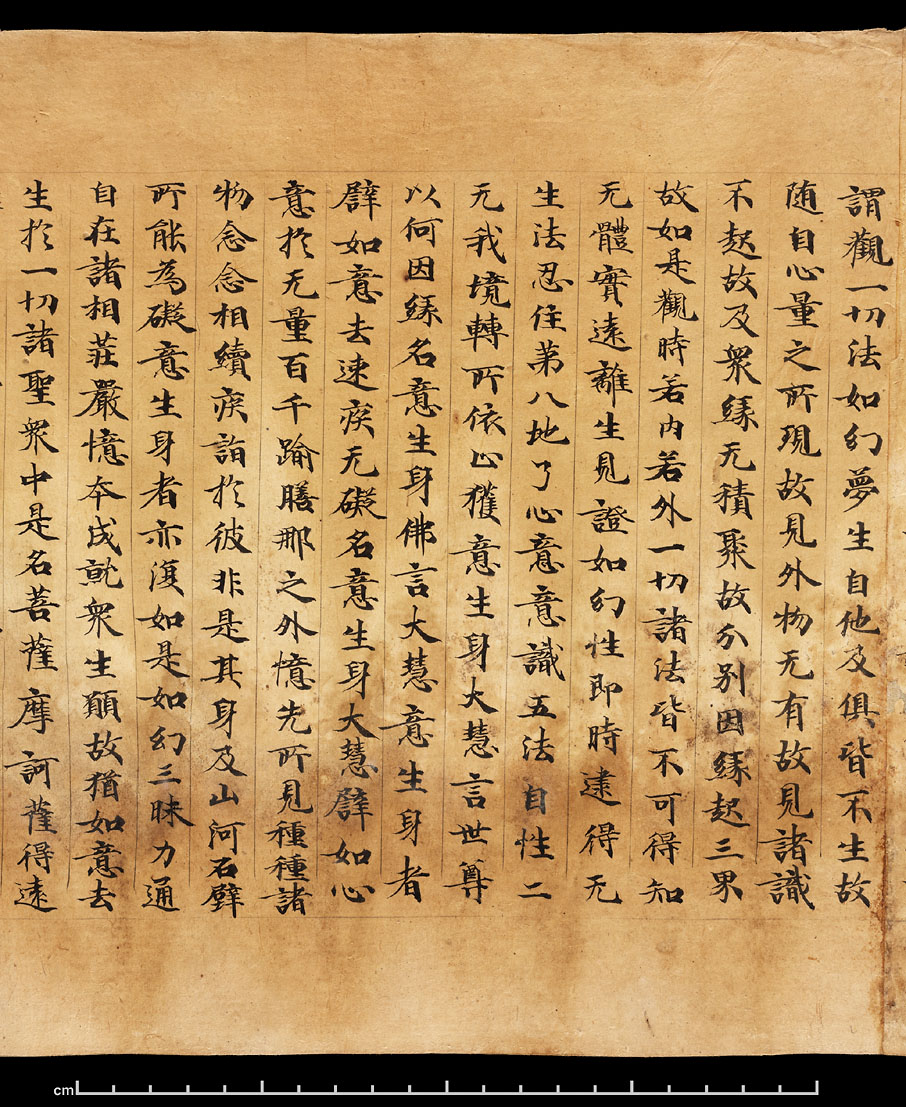 謂觀一切法如幻夢生自他及俱皆不生故
随自心量之所現故見外物无有故見諸識
不起故及衆緣无積聚故分别因緣起三界
故如是觀時若内若外一切諸法皆不可得知
无體實遠離生見證如幻性即時逮得无
生法忍住第八地了心意意識五法自性二
无我境轉所依止獲意生身大慧言世尊
以何因緣名意生身佛言大慧意生身者
譬如意去速疾无礙名意生身大慧譬如心
意於无量百千踰膳那之外憶先所見種種諸
物念念相續疾詣於彼非是其身及山河石壁
所能為礙意生身者亦復如是如幻三昧力通
自在諸相莊嚴憶本成就衆生願故猶如意去
生於一切諸聖衆中是名菩薩摩訶薩得遠
cm